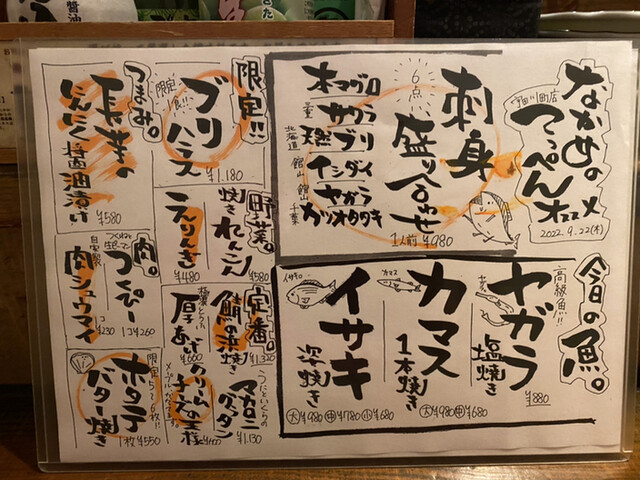 なかめの
てっぺん
オススメ
2022.9.22(木)
刺身
盛り合わせ
6点
1人前 ¥980
本マグロ
サワラ
北海道
ブリ
館山
イシダイ
館山
ヤガラ
千葉
カツオタタキ
今日の魚。
高級魚!!
ヤガラ
塩焼き
¥880
カマス
カマス
1本焼き
大¥980 中¥680
イサキ
イサキ
姿焼き
大¥980 中¥780 小¥680
限定!!
ブリ
ハラス
¥1.180
つまみ。
長芋の
にんにく醤油漬け
¥580
野菜。
焼きれんこん
¥580
えりんぎ
¥480
肉。
つくぴー
1コ¥260
自家製
肉シュウマイ
1コ¥230
定番。
鯖の浜焼き
¥1.320
厚あげ
¥660
うにといくらの
マカロニ
グラタン
¥1.130
クリーム
ホタテ
バター焼き
1枚¥550